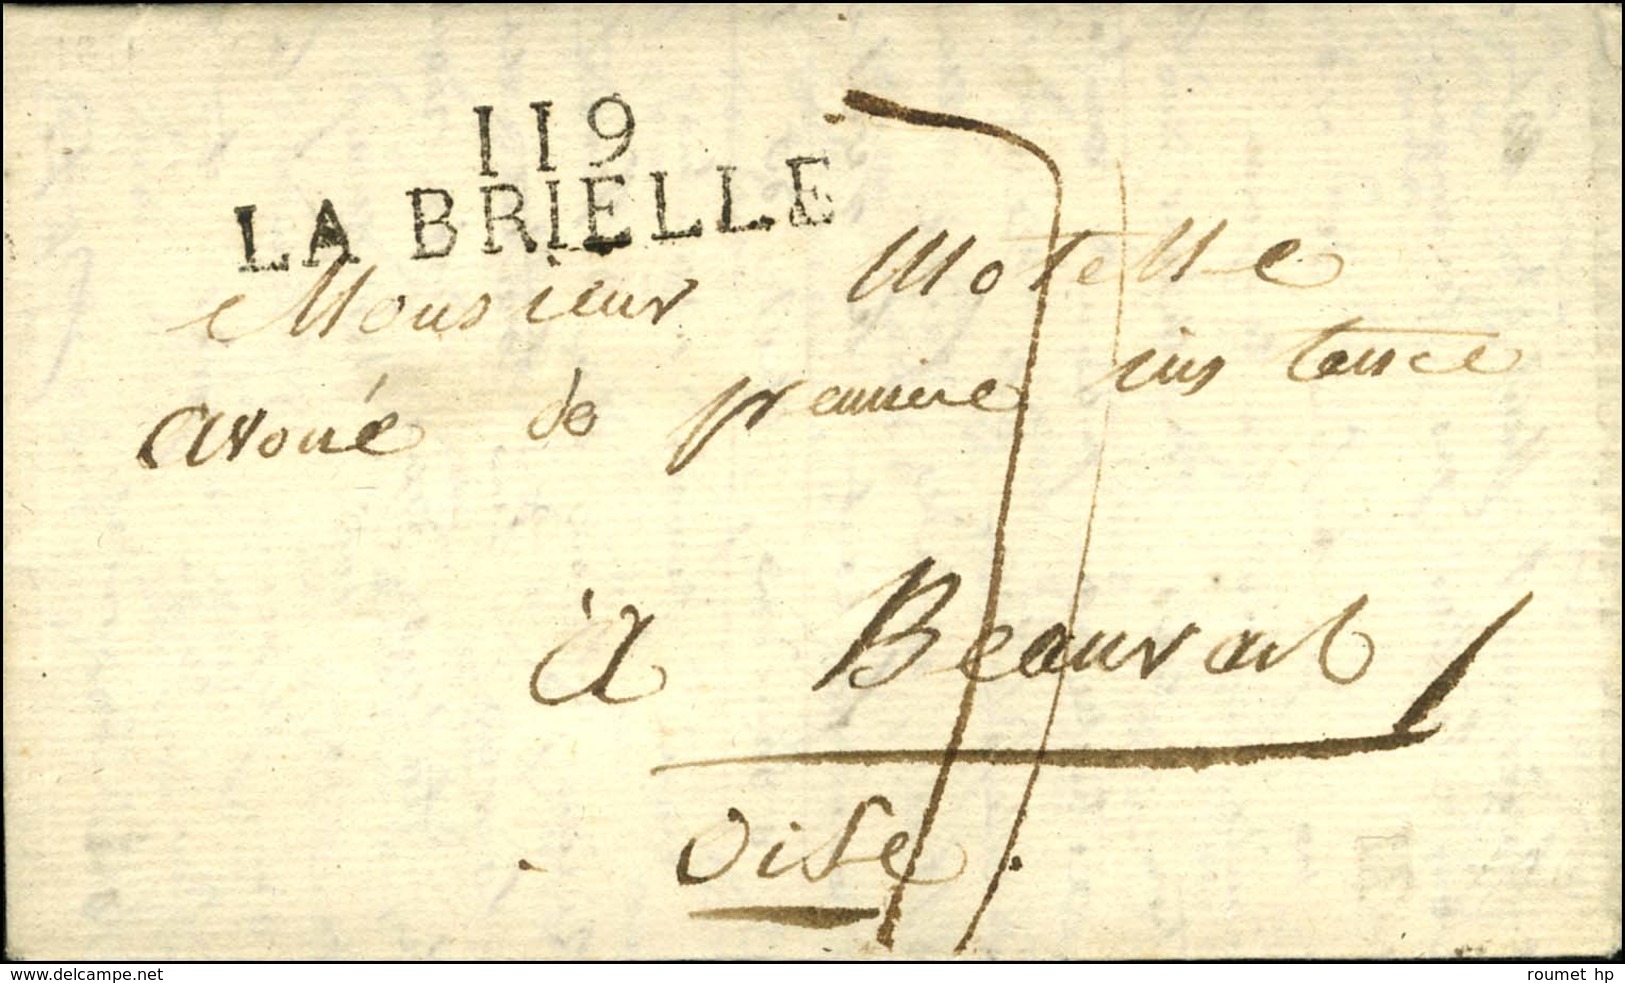 119
LA BRIELLE
Monsieur Motelle
avoué de premiere instance
à Beauvais
Oise
www.delcampe.net
roumet hp